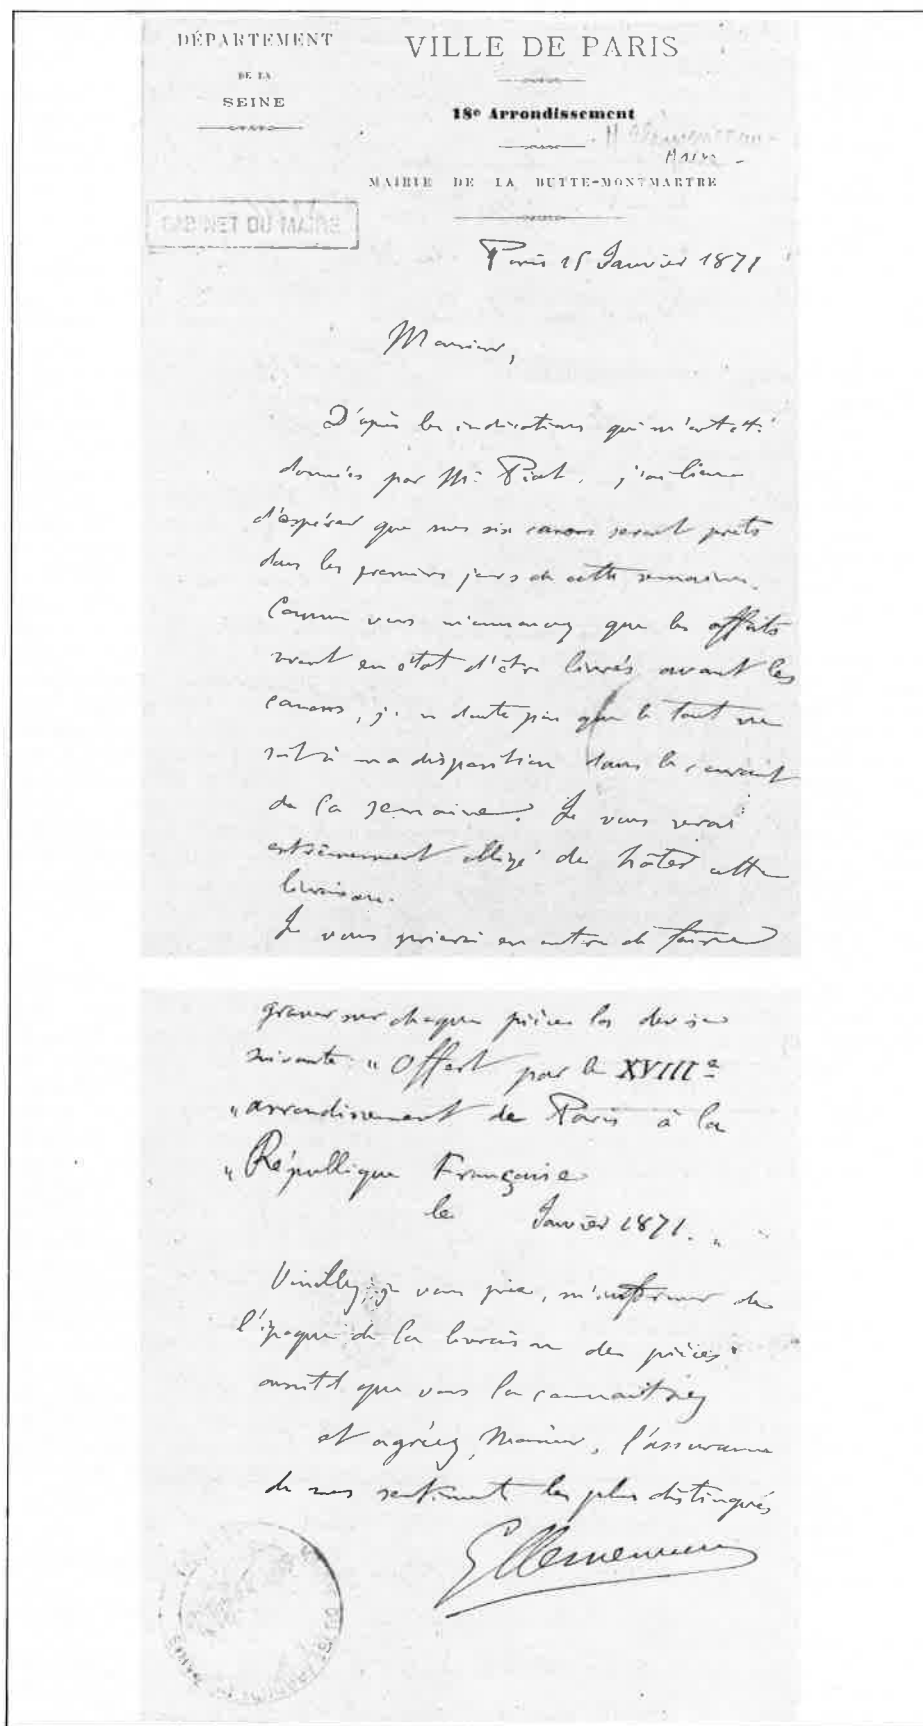 DÉPARTEMENT
DE LA
SEINE
VILLE DE PARIS
18e Arrondissement
M Clémenceau
Maire
MAIRIE DE LA BUTTE-MONTMARTRE
CABINET DU MAIRE
Paris 15 Janvier 1871
Monsieur,
D'après les indications qui m'ont été
données par Mr. Piat, j'ai lieu
d'espérer que mes six canons seront prêts
dans les premiers jours de cette semaine.
Comme vous m'annoncez que les affûts
seront en état d'être livrés avant les
canons, je ne doute pas que le tout ne
soit à ma disposition dans le courant
de la semaine. Je vous serai
extrêmement obligé de hâter cette
livraison.
Je vous prierai en outre de faire
graver sur chaque pièce la devise
suivante "Offert par le XVIIIe
"arrondissement de Paris à la
"République Française
le Janvier 1871."
Veuillez, je vous prie, m'informer de
l'époque de la livraison des pièces
aussitôt que vous la connaîtrez
et agréez, Monsieur, l'assurance
de mes sentiments les plus distingués
GClemenceau